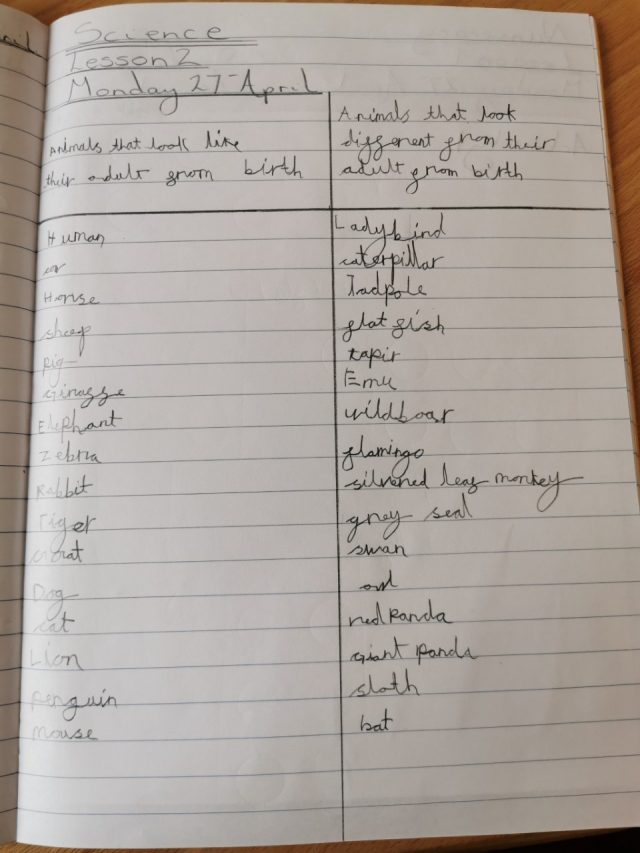 Science
Lesson 2
Monday 27th April
Animals that look like
their adult from birth
Human
Horse
sheep
pig
Giraffe
Elephant
Zebra
Rabbit
Tiger
Goat
Dog
cat
Lion
Penguin
mouse
Animals that look
different from their
adult from birth
Ladybird
caterpillar
Tadpole
flat fish
tapir
Emu
wildboar
flamingo
silvered leaf monkey
grey seal
swan
owl
red Panda
Giant Panda
sloth
bat